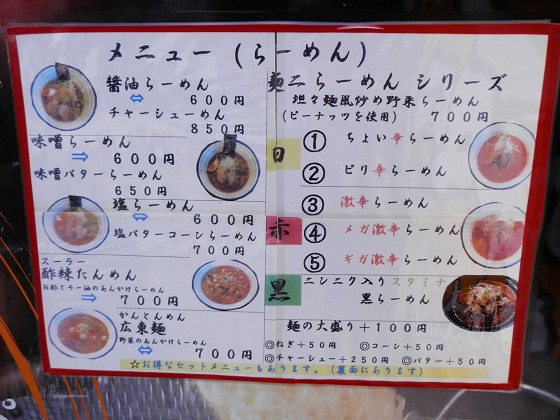 メニュー（らーめん）
醤油らーめん
⇔ 600円
チャーシューめん
850円
味噌らーめん
⇒ 600円
味噌バターらーめん
650円
塩らーめん
⇔ 600円
塩バターコーンらーめん
700円
スーラー
酢辣たんめん
お酢とラー油のあんかけらーめん
⇒ 700円
かんとんめん
広東麺
野菜のあんかけらーめん
⇔ 700円
麺二らーめん シリーズ
坦々麺風炒め野菜らーめん
(ピーナッツを使用) 700円
白
① ちょい辛らーめん
② ピリ辛らーめん
③ 激辛らーめん
赤
④ メガ激辛らーめん
⑤ ギガ激辛らーめん
黒
ニンニク入りスタミナ
黒らーめん
麺の大盛り＋100円
◎ねぎ＋50円 ◎コーン＋50円
◎チャーシュー＋250円 ◎バター＋50円
☆お得なセットメニューもあります。(裏面にあります)